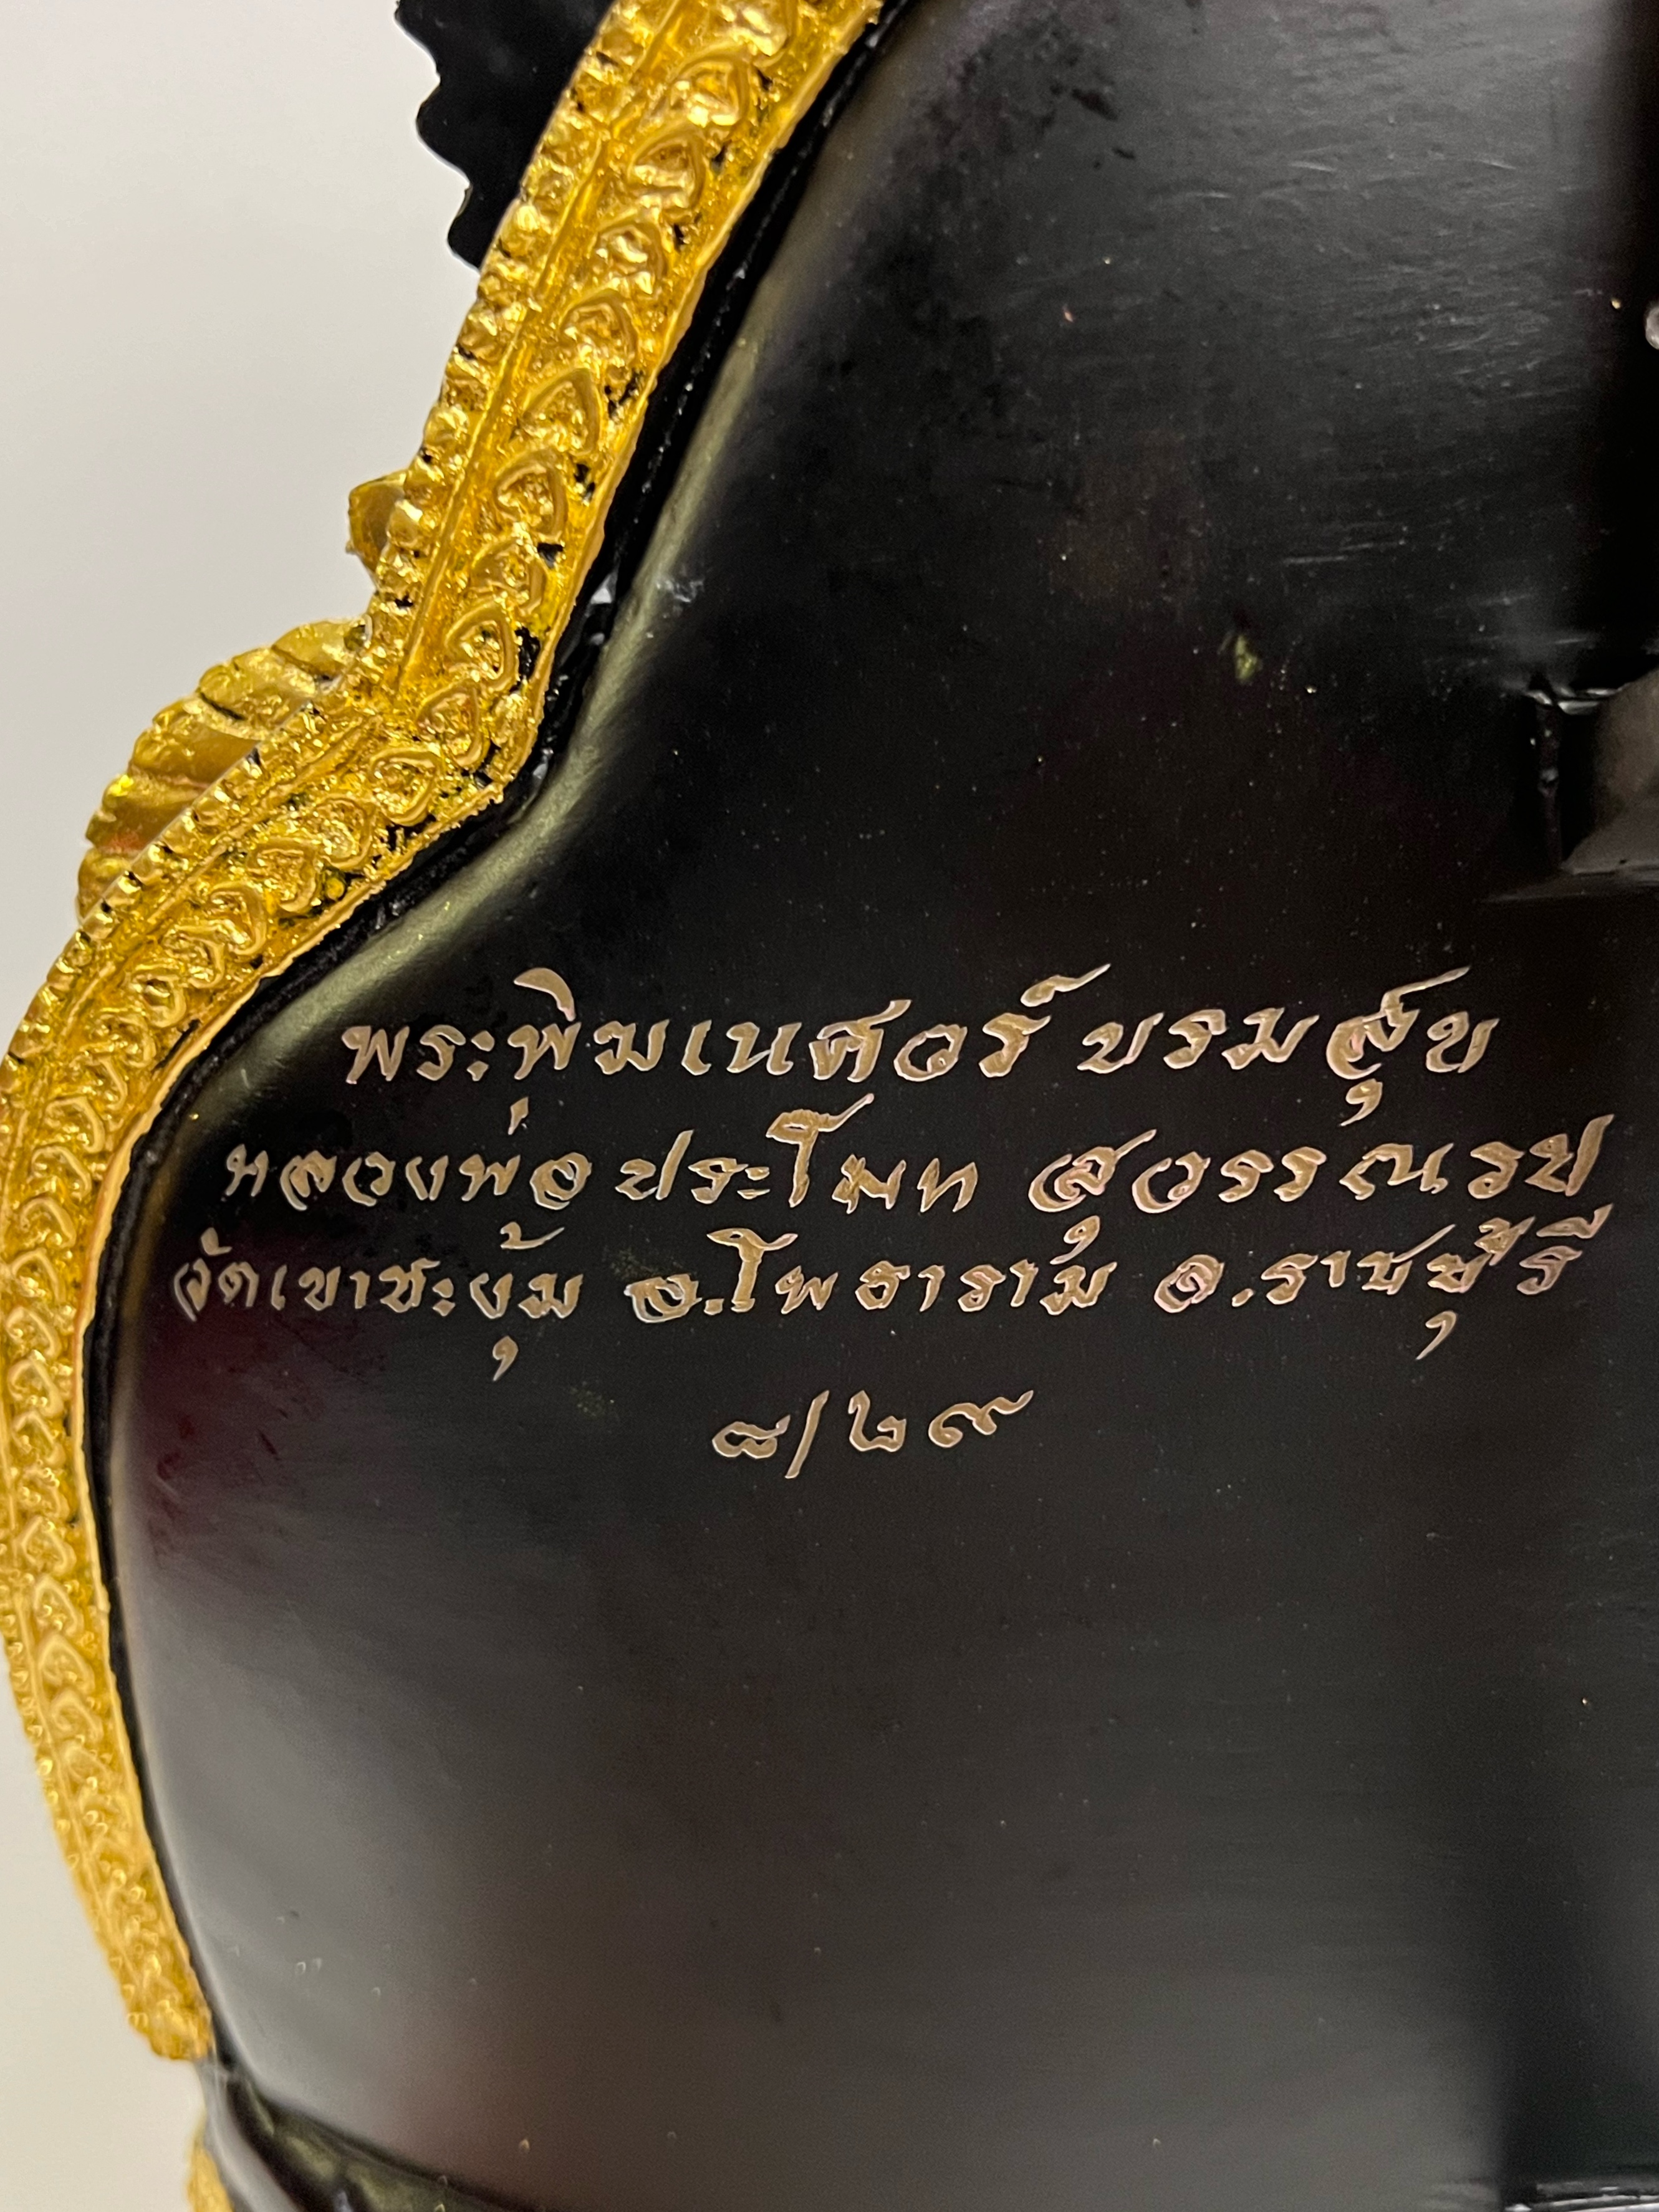 พระพิฆเนศวร์ บรมสุข
หลวงพ่อ ประโมท สุวรรณรูป
วัดเขาชะงุ้ม อ.โพธาราม จ.ราชบุรี
๘/๒๙